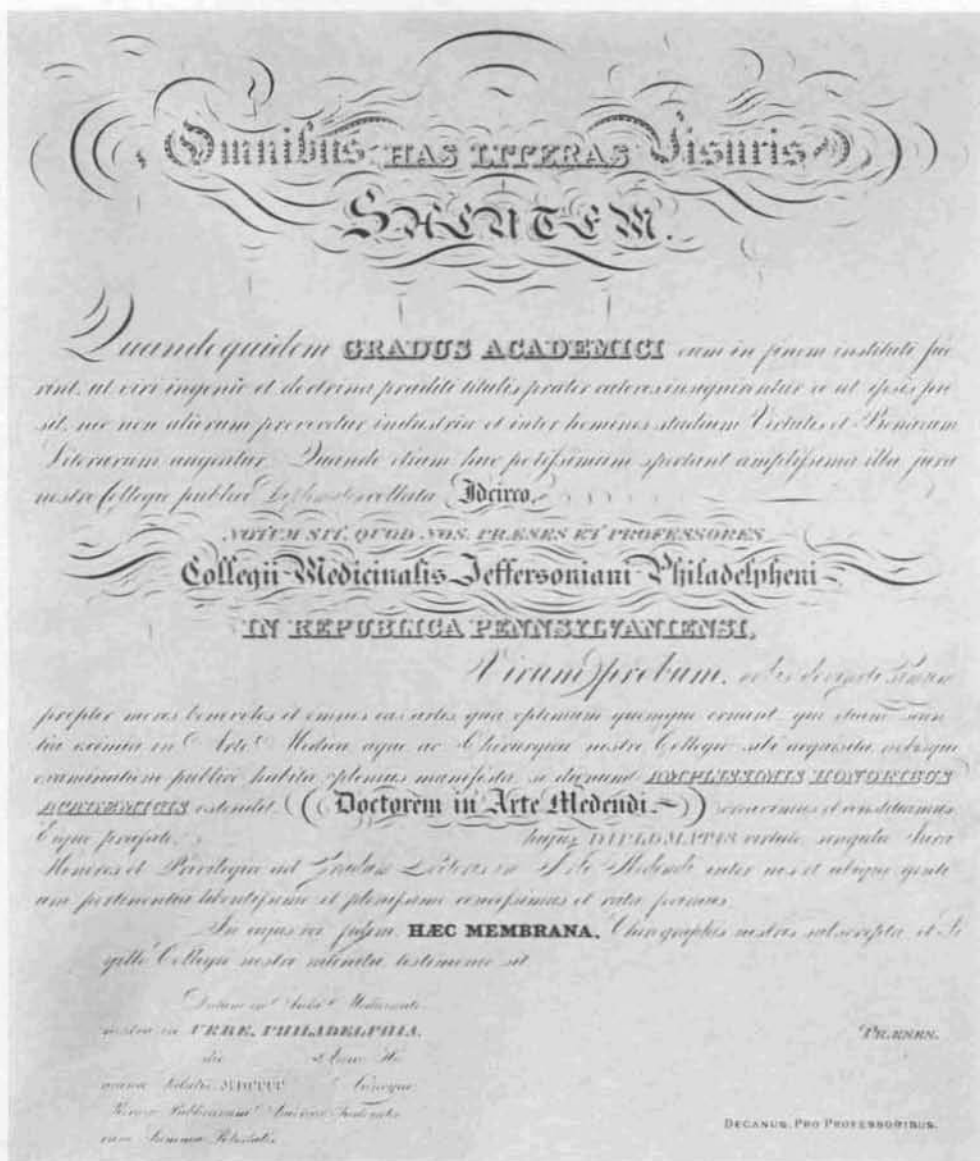 Omnibus HAS LITERAS Visuris
SALUTEM.
Quandoquidem GRADUS ACADEMICI eum in finem instituti fue
rint, ut viri ingenio et doctrina præditi titulis præter cæteros insignirentur eo ut ipsis pro
sit, nec non aliorum provocetur industria et inter homines studium Virtutis et Bonarum
Literarum augeatur. Quando etiam huc potissimum spectant amplissima illa jura
nostro Collegio publico Diplomate collata Idcirco,
NOTUM SIT, QUOD NOS, PRÆSES ET PROFESSORES
Collegii Medicinalis Jeffersoniani Philadelpheni
IN REPUBLICA PENNSYLVANIENSI,
Virum probum,
propter mores benevolos et omnes eas artes quæ optimum quemque ornant, qui etiam scien
tia eximia in Arte Medica æque ac Chirurgica nostro Collegio sibi acquisita, nobisque
examinatione publice habita, plenius manifesta, se dignum AMPLISSIMIS HONORIBUS
ACADEMICIS ostendit, Doctorem in Arte Medendi creavimus et constituimus
Eique præfato, hujus DIPLOMATIS virtute, singula Jura
Honores et Privilegia ad Gradum Doctoris in Arte Medendi inter nos et ubique genti
um pertinentia libentissime et plenissime concessimus et rata fecimus
In cujus rei fidem HÆC MEMBRANA, Chirographis nostris subscripta, et Si
gillo Collegii nostri munita testimonio sit
Datum in Aula Medicinali
nostra in URBE, PHILADELPHIA,
die Anno
MDCCCC
PRÆSES.
DECANUS, PRO PROFESSORIBUS.